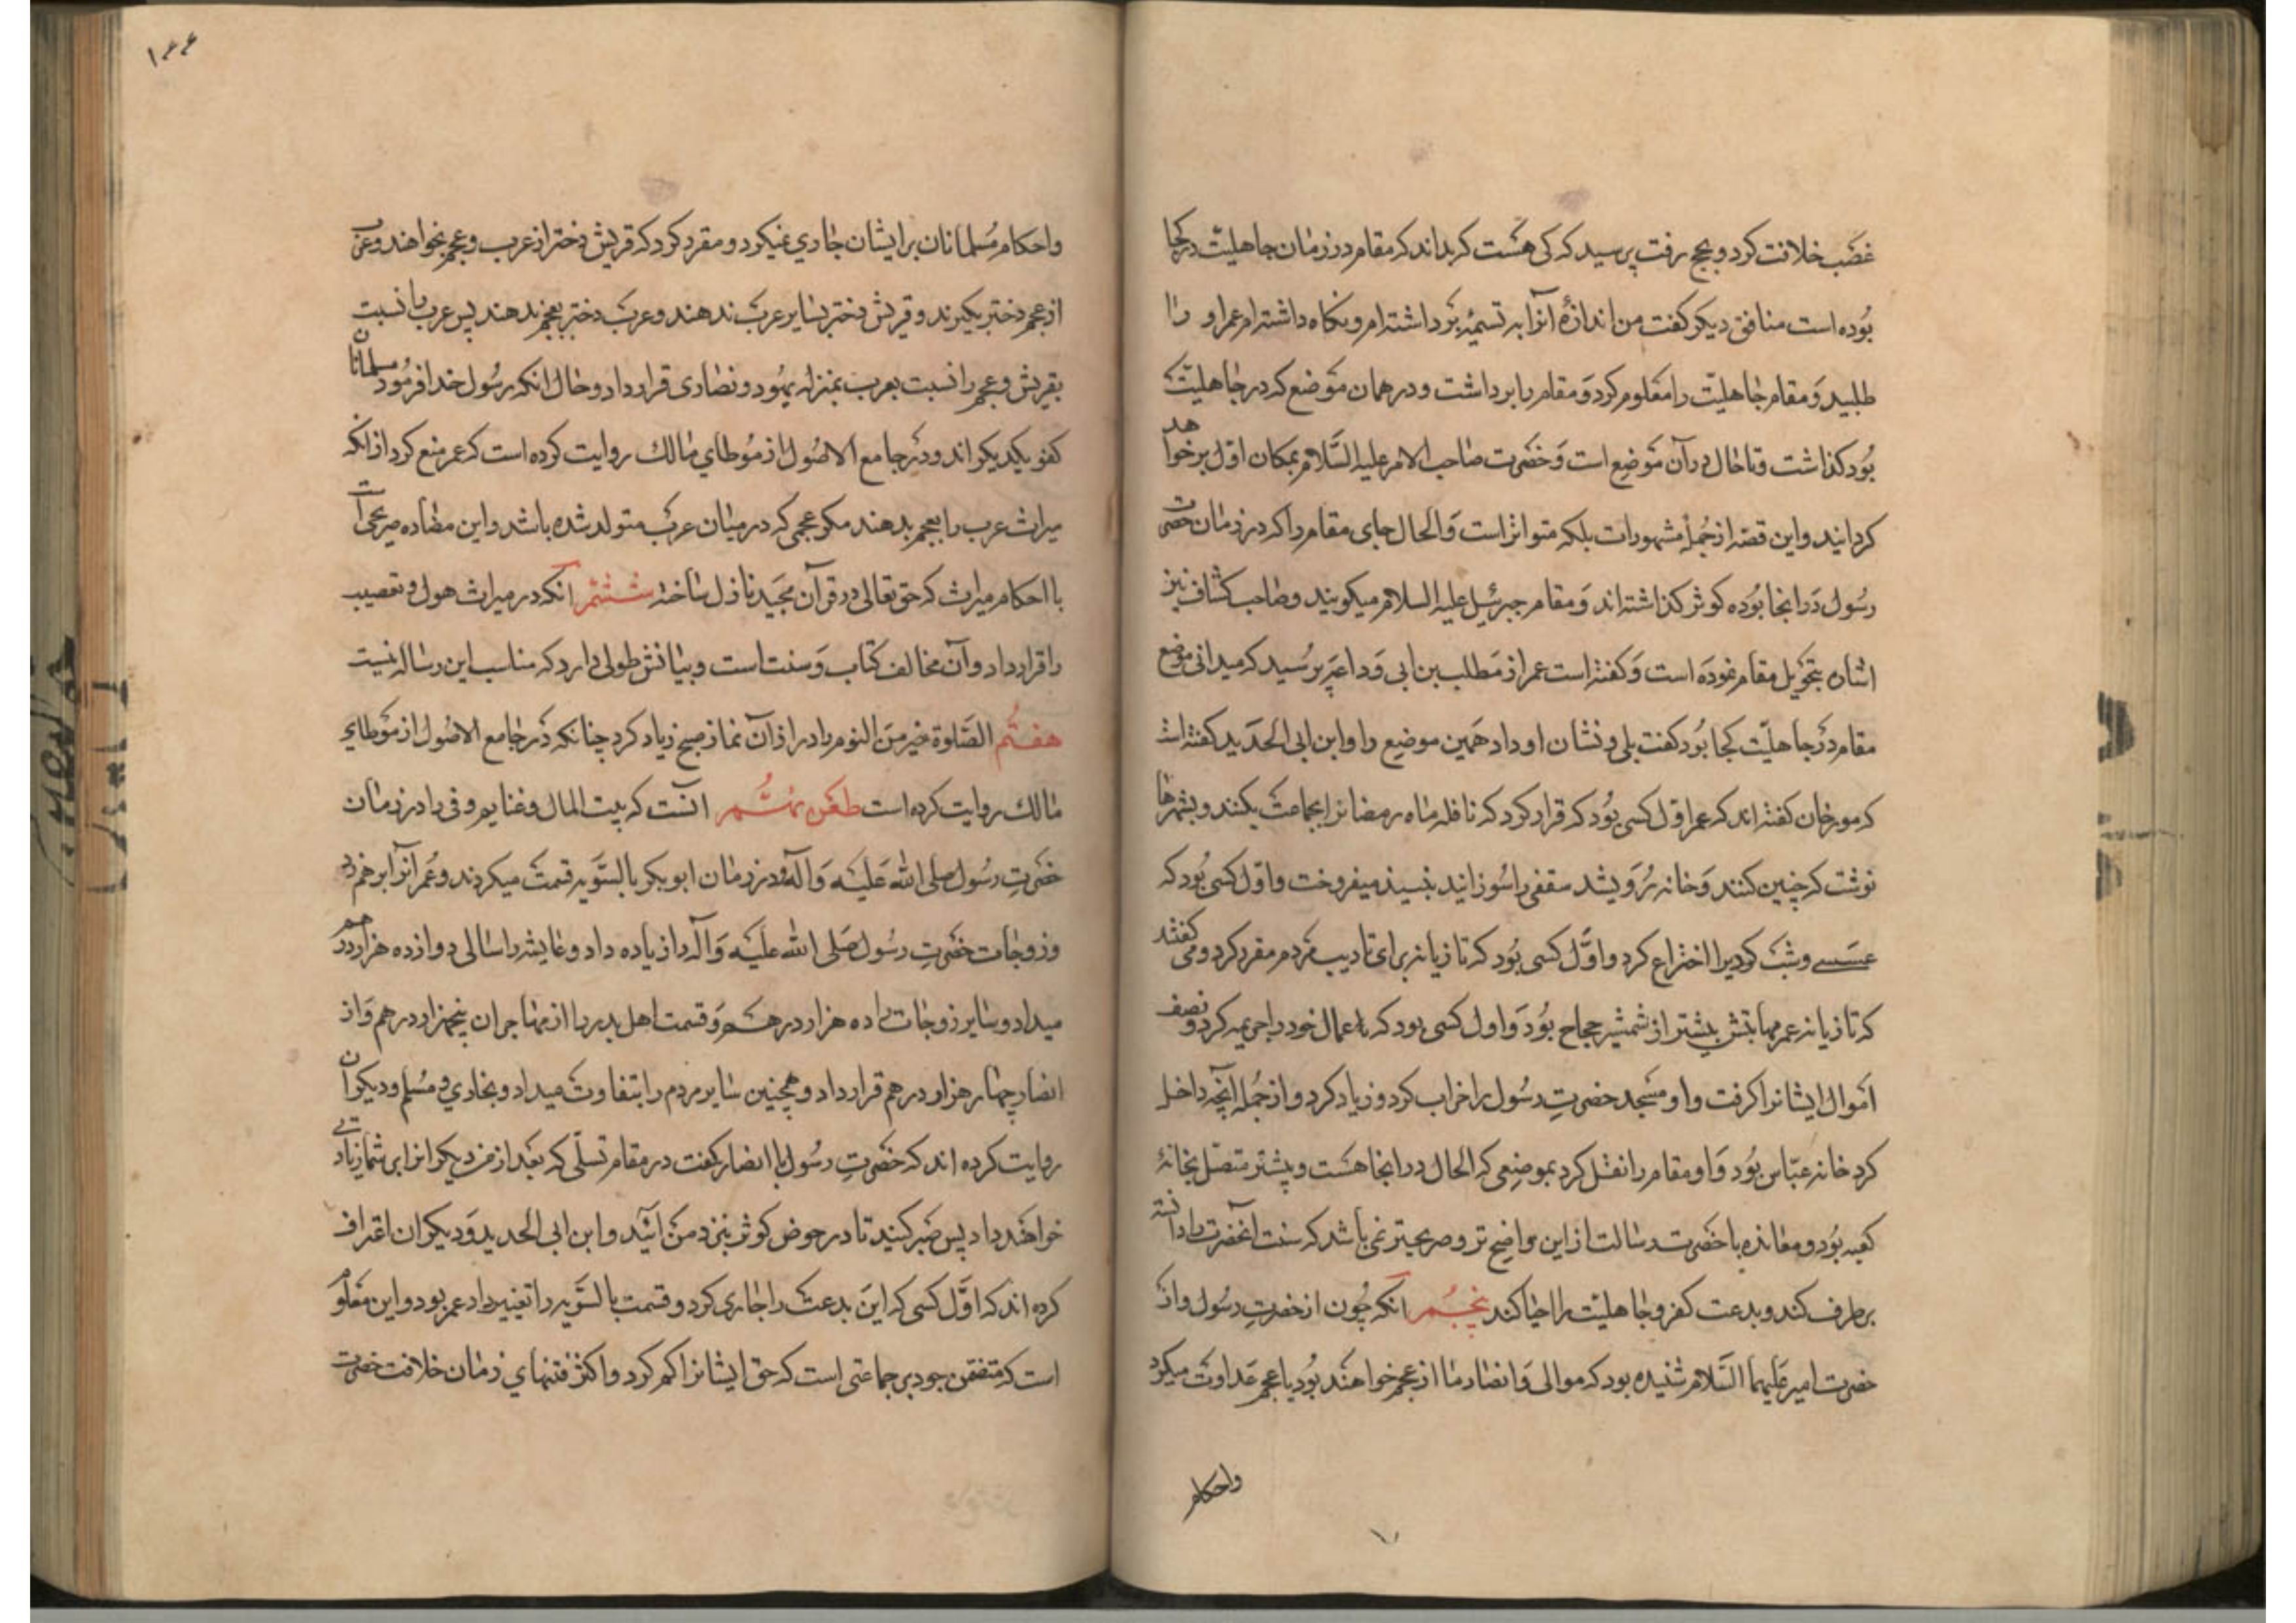 غصب خلافت کرد و بحج رفت پرسید که کی هست که بداند که مقام در زمان جاهلیّت در کجا
بوده است منافق دیکر کفت من اندازهٔ آنرا به تسمهٔ برداشته‌ام و نکاه داشته‌ام عمر او را
طلبید و مقام جاهلیّت را معلوم کرد و مقام را برداشت و در همان موضع که در جاهلیّت
بود کذاشت و تا حال در آن موضع است و حضرت صاحب الامر علیه السّلام بمکان اوّل برخواهد
کردانید و این قصّه از جملهٔ مشهورات بلکه متواتر است و الحال جای مقام را که در زمان حضرت
رسول در انجا بوده کوثر کذاشته‌اند و مقام جبرئیل علیه السلام میکویند و صاحب کشّاف نیز
اشاره بتحویل مقام نموده است و کفته است عمر از مطلب بن ابی وداعه پرسید که میدانی موضع
مقام در جاهلیّت کجا بود کفت بلی و نشان او داد همین موضع را و ابن ابی الحدید کفته است
که مورخان کفته‌اند که عمر اوّل کسی بود که قرار کرد که نافله ماه رمضانرا بجماعت بکنند و بشهرها
نوشت که چنین کنند و خانه رویشد سقفی را سوزانید نبیذ میفروخت و اوّل کسی بود که
عسسے و شب کردیرا اختراع کرد و اوّل کسی بود که تازیانه برای تادیب مردم مقرر کرد و می کفتند
که تازیانه عمر مهابتش بیشتر از شمشیر حجاج بود و اول کسی بود که عمال خود را جریمه کرد و نصف
اموال ایشانرا کرفت و او مسجد حضرتِ رسول را خراب کرد و زیاد کرد و از جمله آنچه داخل
کرد خانه عبّاس بود و او مقام را نقل کرد بموضعی که الحال در انجا هست و پیشتر متصل بخانهٔ
کعبه بود و معانده با حضرت رسالت از این واضح تر و صریحتر نمی باشد که سنت آنحضرت را دانسته
برطرف کند و بدعت کفر و جاهلیّت را احیا کند پنجم انکه چون از حضرتِ رسول و از
حضرت امیر علیهما السّلام شنیده بود که موالی و انصار ما از عجم خواهند بود با عجم عداوت میکرد
واحکام
۱۴۴
واحکام مسلمانان بر ایشان جاری نمیکرد و مقرر کرد که قریش دختر از عرب و عجم بخواهند و عرب
از عجم دختر بکیرند و قریش دختر بسایر عرب ندهند و عرب دختر بعجم ندهند پس عرب با نسبت
بقریش و عجم را نسبت بعرب بمنزله یهود و نصاری قرار داد و حال انکه رسول خدا فرمود مسلمانان
کفو یکدیکراند و در جامع الاصول از موطای مالک روایت کرده است که عمر منع کرد از انکه
میراث عرب را بعجم بدهند مکر عجمی که در میان عرب متولد شده باشد و این مضاده صریحی است
با احکام میراث که حق تعالی در قرآن مجید نازل ساخته ششم انکه در میراث عول و تعصیب
را قرار داد و آن مخالف کتاب و سنت است و بیانش طولی دارد که مناسب این رساله نیست
هفتم الصّلوة خیر من النوم را در اذان نماز صبح زیاد کرد چنانکه در جامع الاصول از موطای
مالک روایت کرده است طعن نهُم انست که بیت المال و غنایم و فی را در زمان
حضرتِ رسول صلی الله علیه و آله و در زمان ابوبکر بالسّویه قسمت میکردند و عمر آنرا بر هم زد
و زوجات حضرتِ رسول صلی الله علیه و آله را زیاده داد و عایشه را سالی دوازده هزار درهم
میداد و سایر زوجات را ده هزار درهم و قسمت اهل بدر را از مهاجران پنجهزار درهم و از
انصار چهار هزار درهم قرار داد و همچنین سایر مردم را بتفاوت میداد و بخاری و مسلم و دیکران
روایت کرده‌اند که حضرتِ رسول با انصار کفت در مقام تسلّی که بعد از من دیکرانرا بر شما زیادتی
خواهند داد پس صبر کنید تا در حوض کوثر بنزد من آئید و ابن ابی الحدید و دیکران اعتراف
کرده‌اند که اوّل کسی که این بدعت را جاری کرد و قسمت بالسّویه را تغییر داد عمر بود و این معلوم
است که متضمن جور بر جماعتی است که حق ایشانرا کم کرد و اکثر فتنهای زمان خلافت حضرت